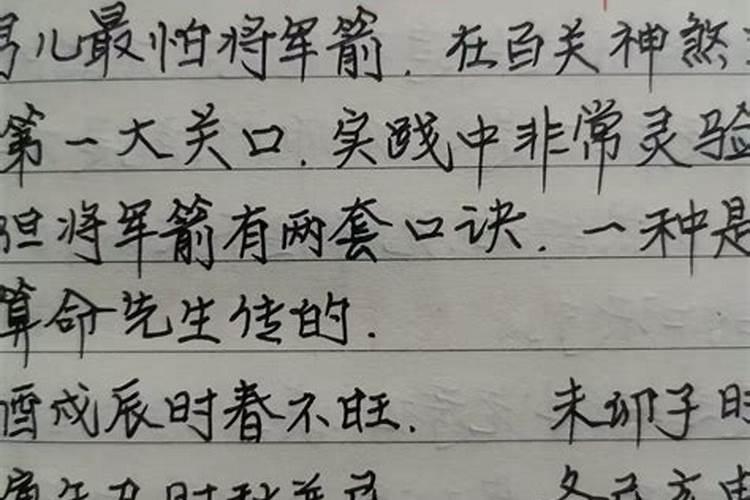 男儿最怕将军箭. 在百关神煞
第一大关口. 实践中非常灵验
但将军箭有两套口诀. 一种是
算命先生传的.
酉戌辰时春不旺. 未卯子时